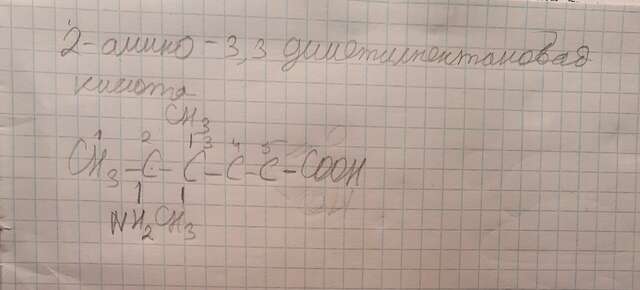 2-амино-3,3 диметилпентановая
кислота
CH3
1 2 3 4 5
CH3-C-C-C-C-COOH
NH2 CH3